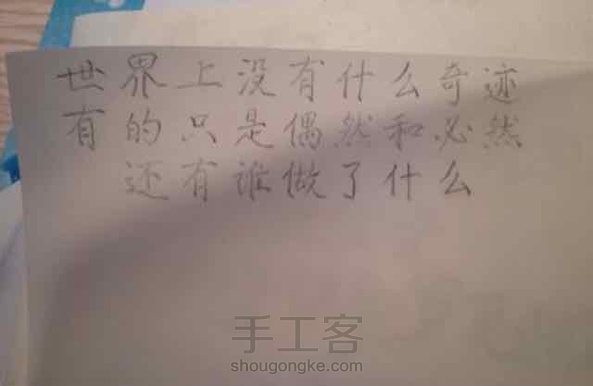 世界上没有什么奇迹
有的只是偶然和必然
还有谁做了什么
手工客
shougongke.com